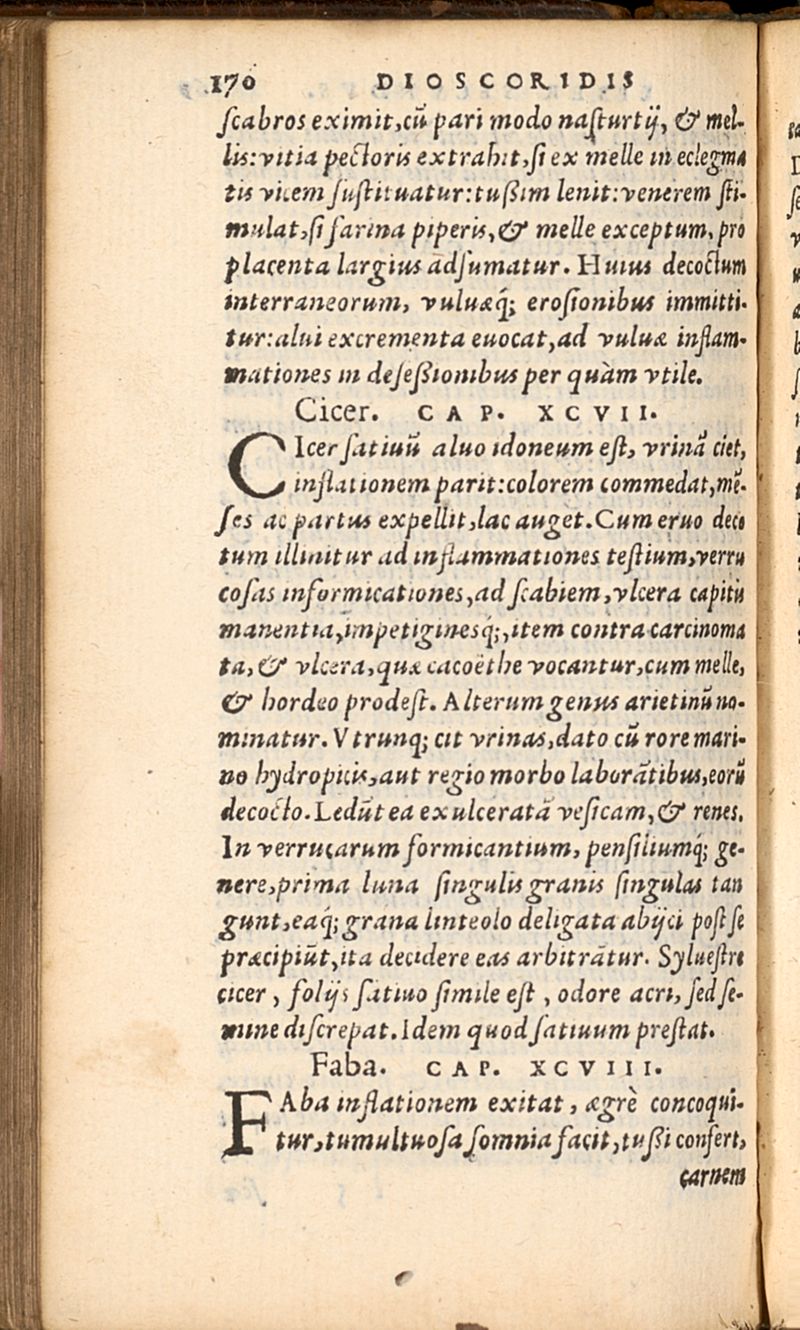 170 DIOSCORIDIS
scabros eximit, cũ pari modo nasturtij, & mel-
lis: vitia pectoris extrahit, si ex melle in eclegma
tis vicem sustituatur: tußim lenit: venerem sti-
mulat, si farina piperis, & melle exceptum, pro
placenta largius adsumatur. Huius decoctum
interraneorum, vuluæq́; erosionibus immitti-
tur: alui excrementa euocat, ad vuluæ inflam-
mationes in deseßionibus per quàm vtile.
Cicer. CAP. XCVII.
CIcer satiuũ aluo idoneum est, vrinã ciet,
inflationem parit: colorem commedat, mẽ-
ses ac partus expellit, lac auget. Cum eruo deco
tum illinitur ad inflammationes testium, verru
cosas informicationes, ad scabiem, vlcera capitis
manentia, impetiginesq́;, item contra carcinoma
ta, & vlcera, quæ cacoëthe vocantur, cum melle,
& hordeo prodest. Alterum genus arietinũ no-
minatur. Vtrunq; cit vrinas, dato cũ rore mari-
no hydropicis, aut regio morbo laborãtibus, eorũ
decocto. Ledũt ea exulceratã vesicam, & renes.
In verrucarum formicantium, pensiliumq́; ge-
nere, prima luna singulis granis singulas tan
gunt, eaq́; grana linteolo deligata abijci post se
præcipiũt, ita decidere eas arbitrãtur. Syluestre
cicer, folijs satiuo simile est, odore acri, sed se-
mine discrepat. Idem quod satiuum prestat.
Faba. CAP. XCVIII.
FAba inflationem exitat, ægrè concoqui-
tur, tumultuosa somnia facit, tußi confert,
carnem